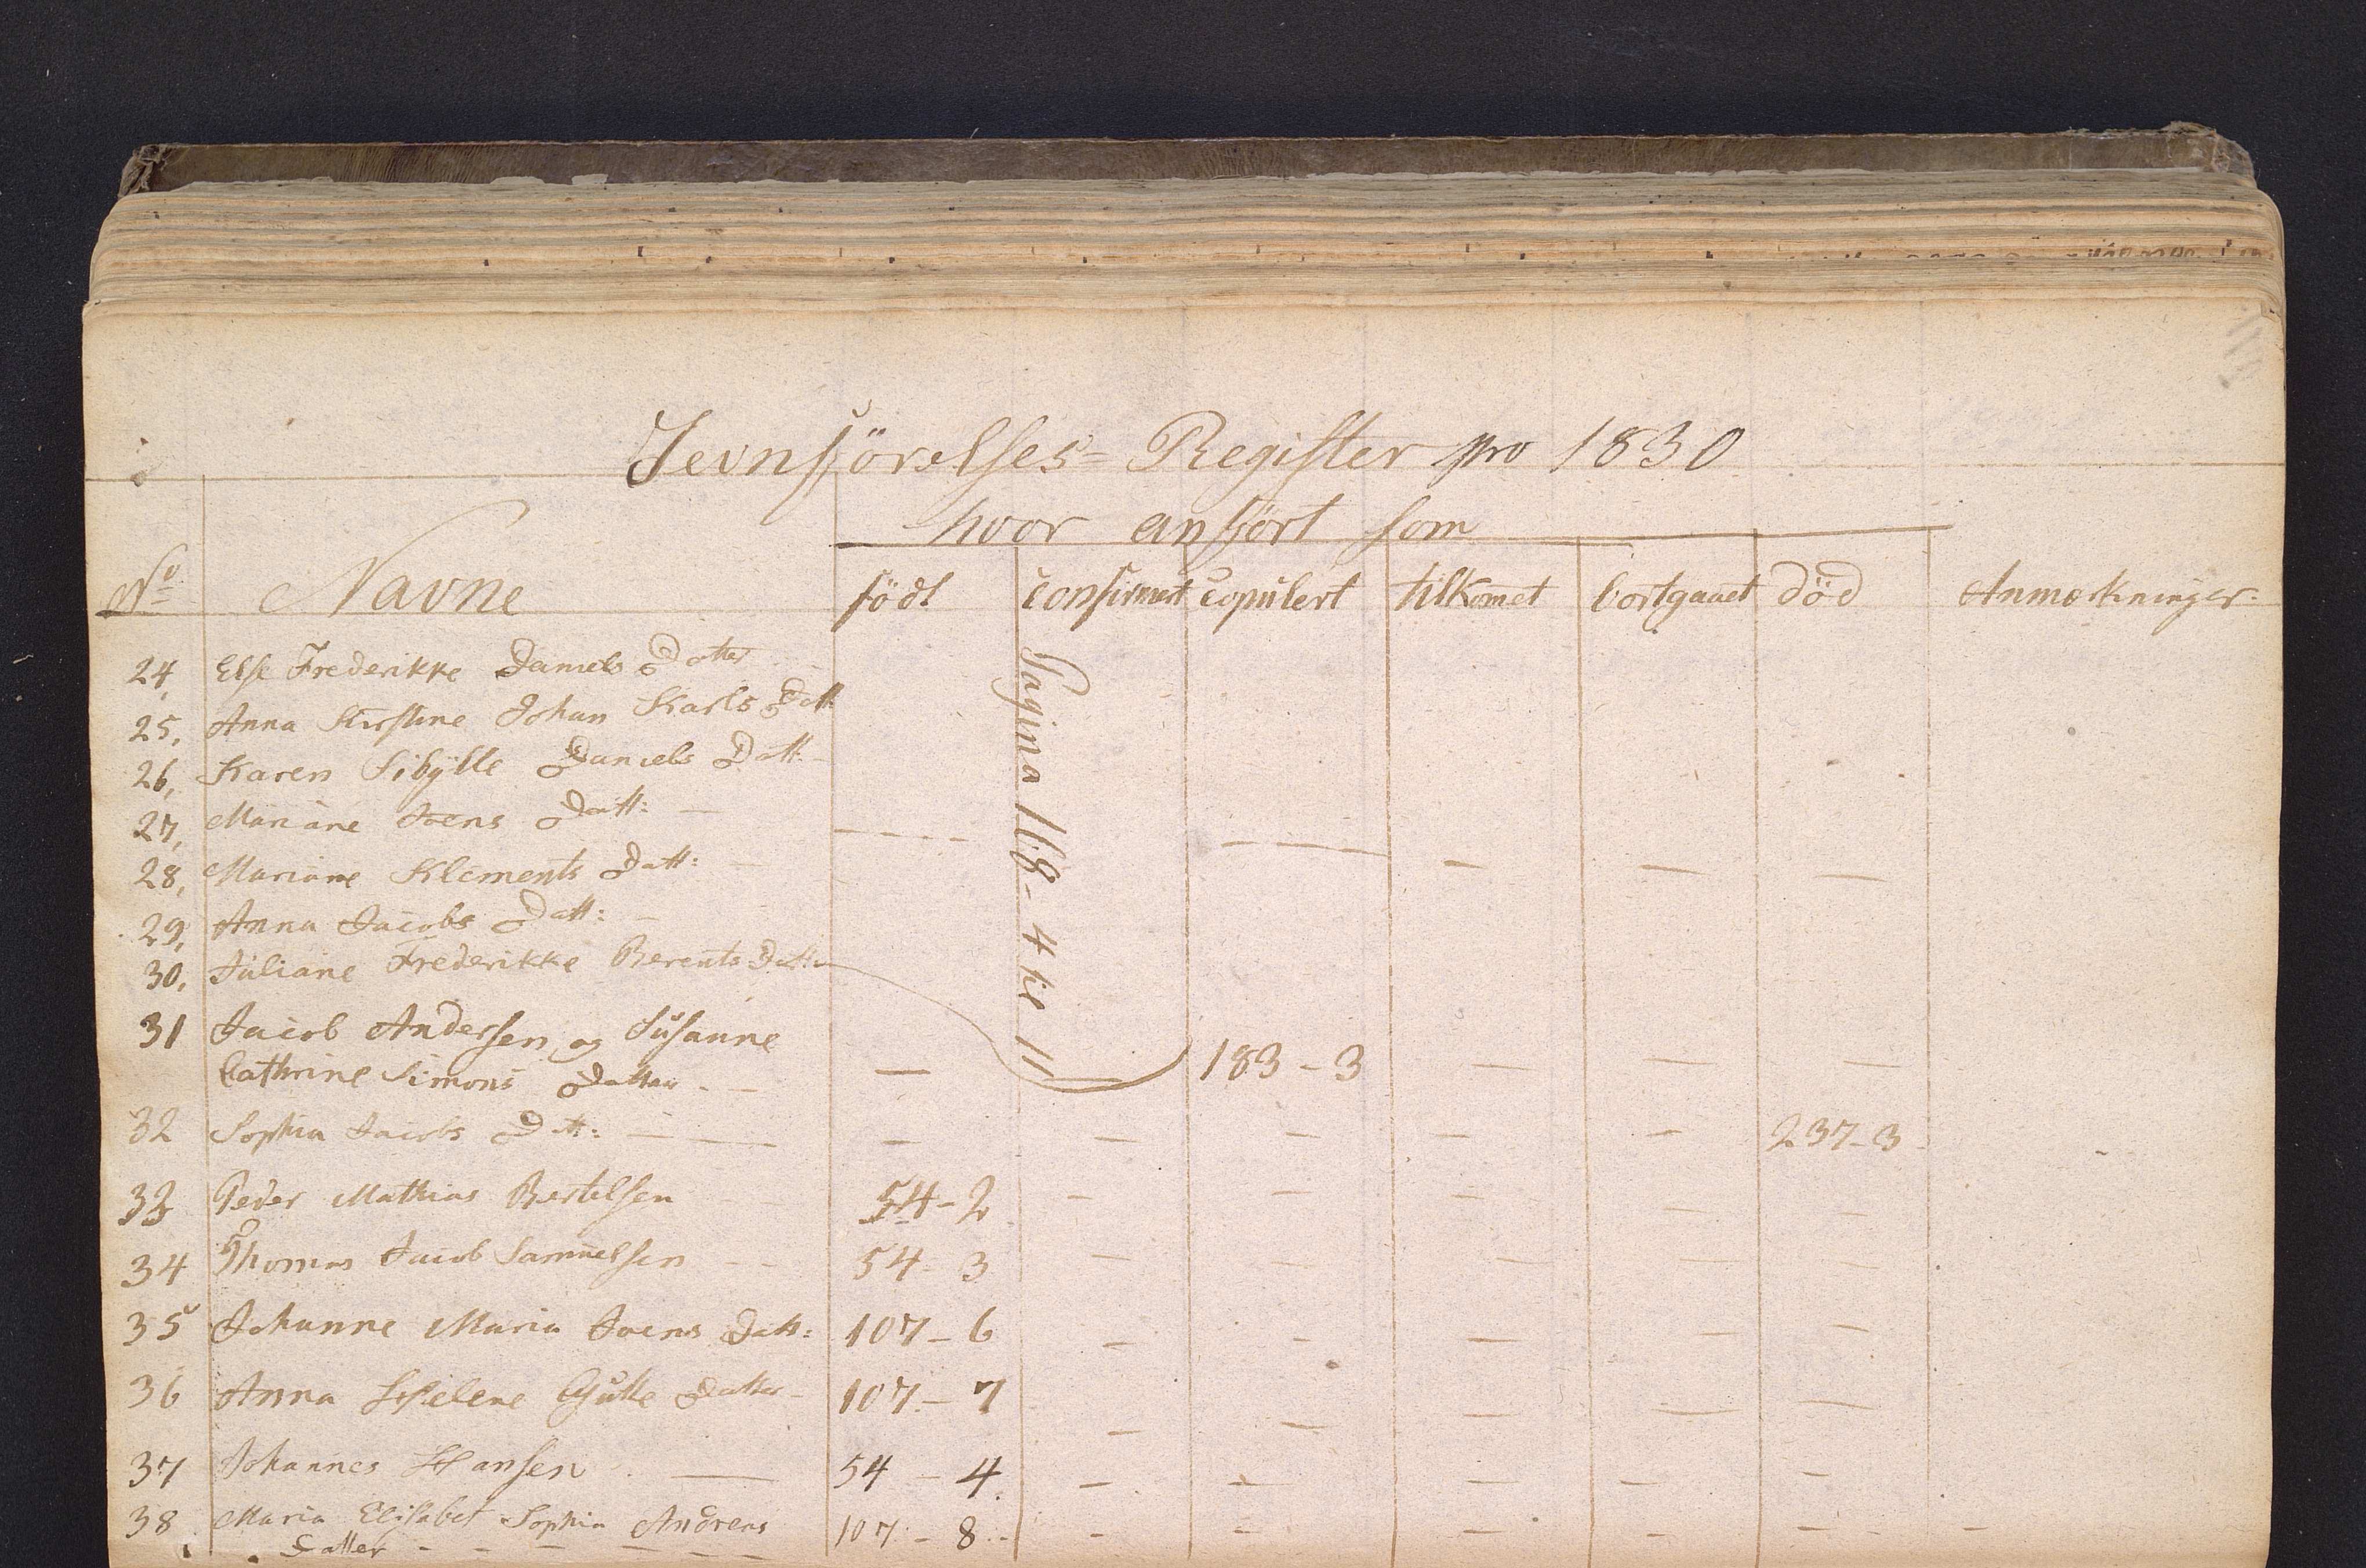 Jevnförelses= Register pro 1830
hvor anfört som
No Navne födt confirmert copulert tilkomet bortgaaet död Anmerkninger
24, Else Frederikke Daniels Datter
25, Anna Kirstine Johan Karls Datt:
26, Karen Sibylle Daniels Datt:
27, Mariane Joens Datt: —
28, Mariane Klements Datt: —
29, Anna Jacobs Datt: —
30, Juliane Frederikke Berents Datt:
Pagina 168 - 4 til 11
31 Jacob Andersen og Susanne
Cathrine Simons Datter - — — 183 - 3 — — —
32 Sophia Jacobs Datt: — — — — — — — 237-3
33 Peder Mathias Bertelsen 54-2 — — — — —
34 Thomas Jacob Samuelsen 54-3 — — — — —
35 Johanne Maria Joens Datt: 107-6 — — — — —
36 Anna Helene Gutte Datter 107-7 — — — — —
37 Johannes Hansen — 54 - 4 — — — — —
38 Maria Elisabet Sophia Andreas 107 - 8 - — — — — — —
Datter - - - — — —